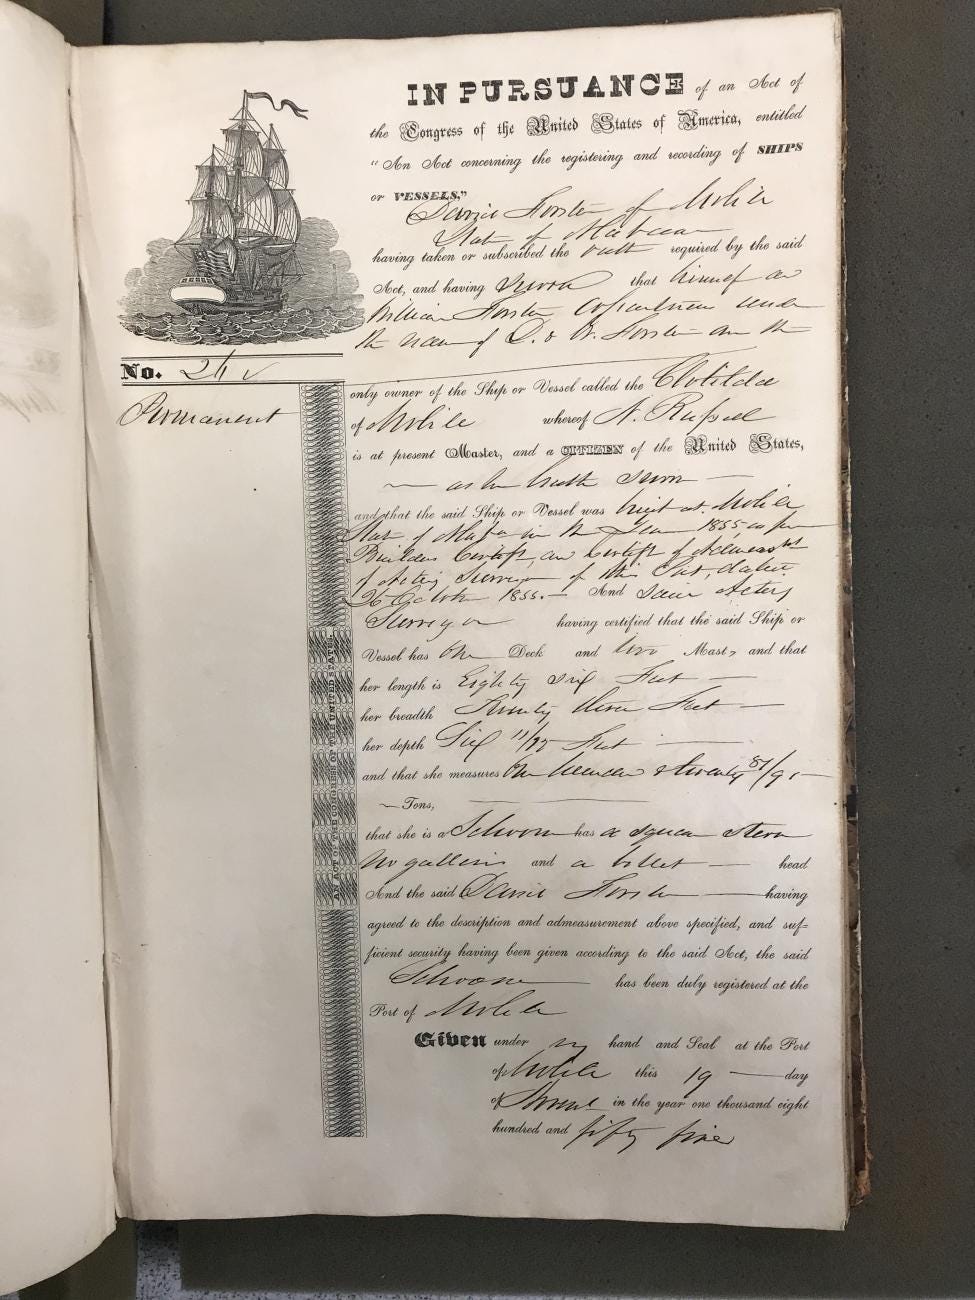 IN PURSUANCE of an Act of
the Congress of the United States of America, entitled
"An Act concerning the registering and recording of SHIPS
or VESSELS,"
Forster of Mobile
State of Alabama
having taken or subscribed the oath required by the said
Act, and having sworn that himself and
William Forster under
the name of D. & W. Forster are the
No. 
Permanent
only owner of the Ship or Vessel called the Clotilda
of Mobile whereof N. Russell
is at present Master, and a CITIZEN of the United States,
as he hath sworn
and that the said Ship or Vessel was built at Mobile
State of Alabama in the Year 1855 as per
Builders Certift, and Certift of Admeast
of Acting Surveyor of this Port, dated
26 October 1855. - And said Acting
Surveyor having certified that the said Ship or
Vessel has One Deck and two Masts and that
her length is Eighty six Feet
her breadth Twenty three Feet
her depth Six 11/12 Feet
and that she measures One hundred & twenty 81/95
Tons,
that she is a Schooner has a square stern
no galleries and a billet head
And the said Forster having
agreed to the description and admeasurement above specified, and suf=
ficient security having been given according to the said Act, the said
Schooner has been duly registered at the
Port of Mobile
Given under my hand and Seal at the Port
of Mobile this 19 day
of in the year one thousand eight
hundred and fifty five
AN ACT OF THE CONGRESS OF THE UNITED STATES.